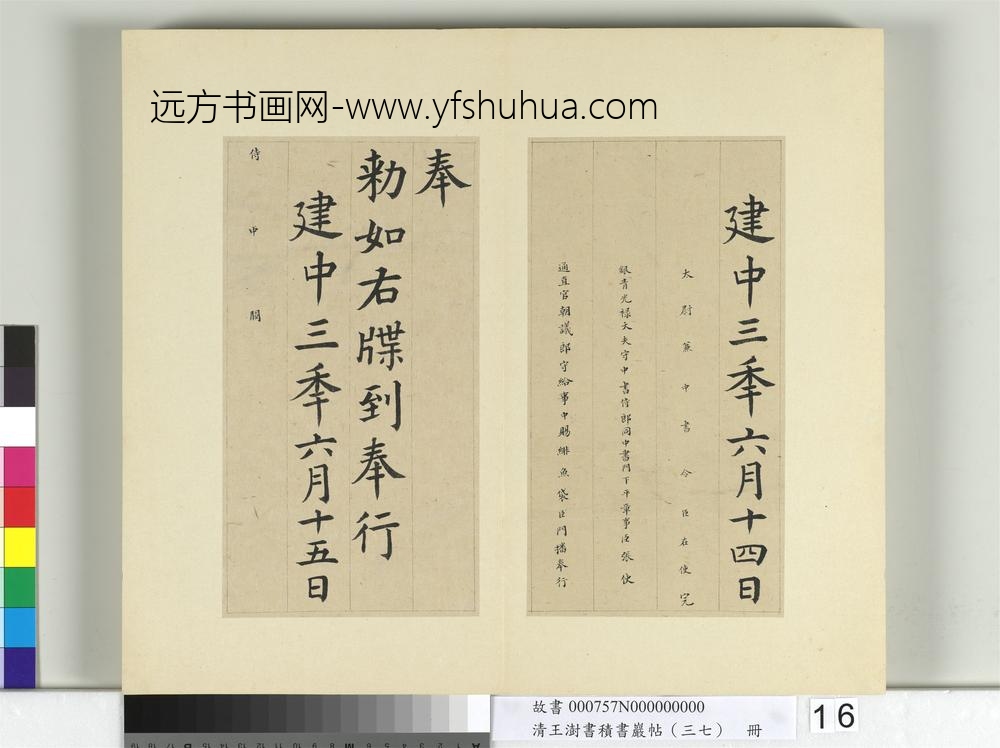 远方书画网-www.yfshuhua.com
建中三秊六月十四日
太尉兼中書令臣在使完
銀青光祿大夫守中書侍郎同中書門下平章事臣張使
通直官朝議郎守給事中賜緋魚袋臣門播奉行
奉
勑如右牒到奉行
建中三秊六月十五日
侍中闕
故書 000757N000000000
清王澍書積書巖帖（三七） 冊
16